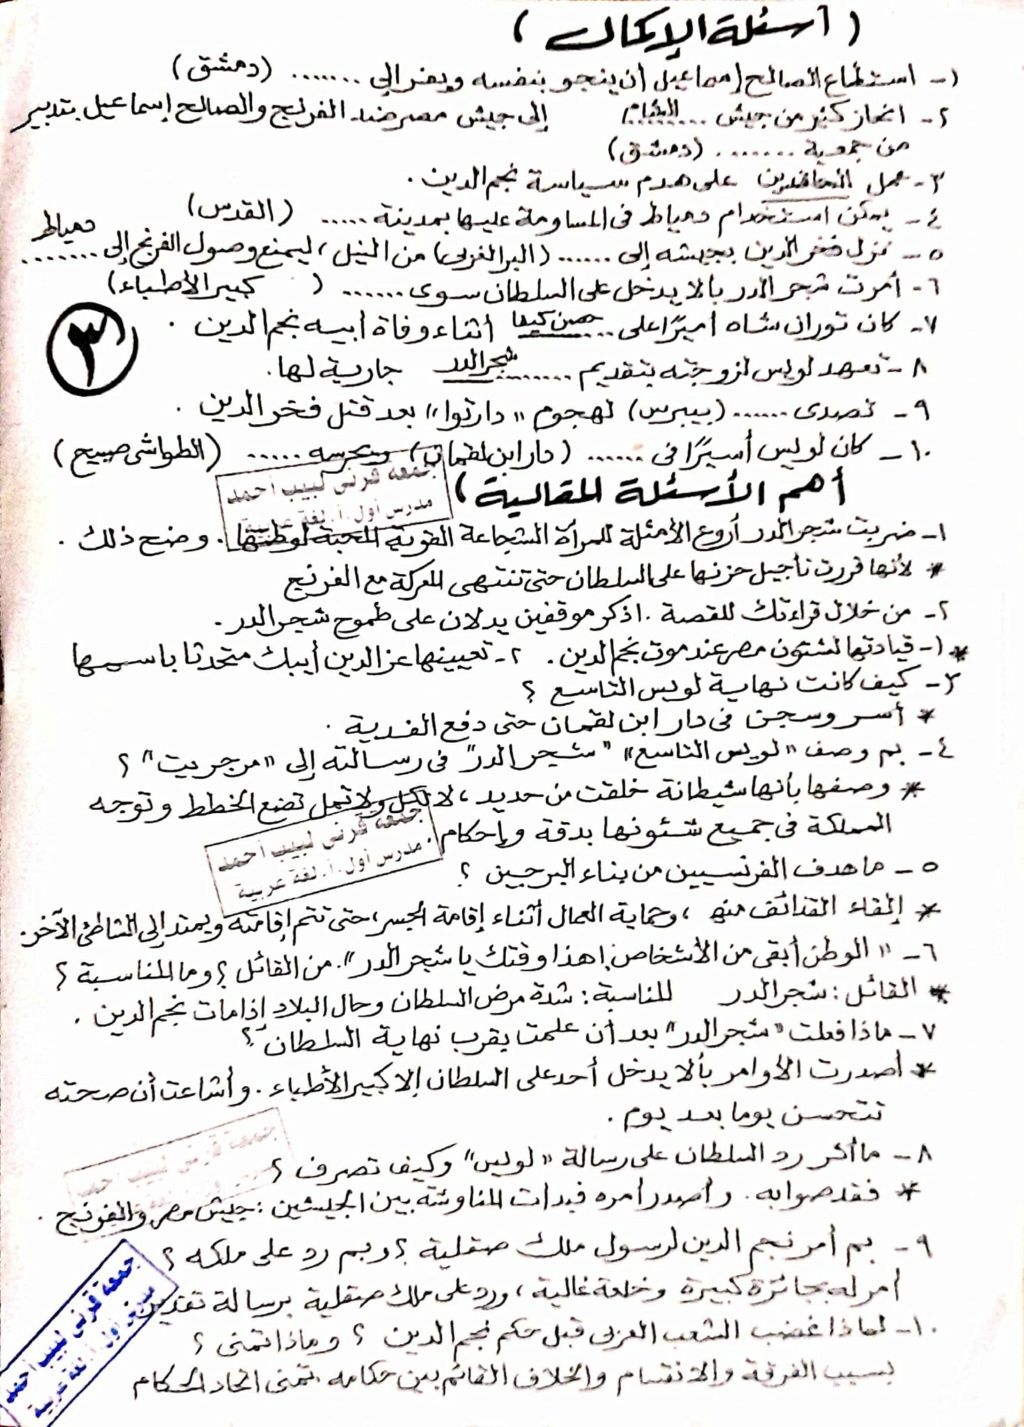 ( أسئلة الإكمال )
١- استطاع الصالح إسماعيل أن ينجو بنفسه ويفر إلى ....... (دمشق)
٢- انحاز كثير من جيش ..الشام.. إلى جيش مصر ضد الفرنج والصالح إسماعيل بتدبير
من جمعية ....... (دمشق)
٣- عمل الحاقدين على هدم سياسة نجم الدين .
٤- يمكن استخدام دمياط فى المساومة عليها بمدينة ..... (القدس)
٥- نزل فخر الدين بجيشه إلى ...... (البر الغربى) من النيل ، ليمنع وصول الفرنج إلى ....... دمياط
٦- أمرت شجر الدر بألا يدخل على السلطان سوى ...... ( كبير الأطباء )
٧- كان توران شاه أميرًا على ..حصن كيفا أثناء وفاة أبيه نجم الدين .
٨- تعهد لويس لزوجته بتقديم ....... شجر الدر جارية لها .
٣
٩- تصدى ...... (بيبرس) لهجوم "دارتوا" بعد قتل فخر الدين .
١٠- كان لويس أسيرًا فى ...... (دار ابن لقمان) ويحرسه ..... (الطواشى صبيح)
أهم الأسئلة المقالية )
جمعه قرنى لبيب أحمد
مدرس أول.أ. لغة عربية
١- ضربت شجر الدر أروع الأمثلة للمرأة الشجاعة القوية المحبة لوطنها . وضح ذلك .
* لأنها قررت تأجيل حزنها على السلطان حتى تنتهى المعركة مع الفرنج
٢- من خلال قراءتك للقصة . اذكر موقفين يدلان على طموح شجر الدر .
* ١- قيادتها لشئون مصر عند موت نجم الدين . ٢- تعيينها عز الدين أيبك متحدثا باسمها
٣- كيف كانت نهاية لويس التاسع ؟
* أسر وسجن فى دار ابن لقمان حتى دفع الفدية .
٤- بم وصف "لويس التاسع" "شجر الدر" فى رسالته إلى "مرجريت" ؟
* وصفها بأنها شيطانة خلقت من حديد ، لا تكل ولا تمل تضع الخطط وتوجه
المملكة فى جميع شئونها بدقة وإحكام .
جمعه قرنى لبيب أحمد
مدرس أول.أ. لغة عربية
٥- ما هدف الفرنسيين من بناء البرجين ؟
* إلقاء القذائف منها ، وحماية العمال أثناء إقامة الجسر ، حتى تتم إقامته ويمتد إلى الشاطئ الآخر
٦- " الوطن أبقى من الأشخاص ، هذا وقتك يا شجر الدر". من القائل ؟ وما المناسبة ؟
* القائل : شجر الدر المناسبة : شدة مرض السلطان وحال البلاد إذا مات نجم الدين .
٧- ماذا فعلت "شجر الدر" بعد أن علمت بقرب نهاية السلطان ؟
* أصدرت الأوامر بألا يدخل أحد على السلطان إلا كبير الأطباء . وأشاعت أن صحته
تتحسن يوما بعد يوم .
٨- ما أثر رد السلطان على رسالة "لويس" وكيف تصرف ؟
* فقد صوابه . وأصدر أمره فبدأت المناوشة بين الجيشين : جيش مصر والفرنج .
٩- بم أمر نجم الدين لرسول ملك صقلية ؟ وبم رد على ملكه ؟
أمر له بجائزة كبيرة وخلعة غالية ، ورد على ملك صقلية برسالة تقدير
١٠- لماذا غضب الشعب العربى قبل حكم نجم الدين ؟ وماذا تمنى ؟
بسبب الفرقة والانقسام والخلاف القائم بين حكامه . تمنى اتحاد الحكام
جمعه قرنى لبيب أحمد
مدرس أول.أ. لغة عربية